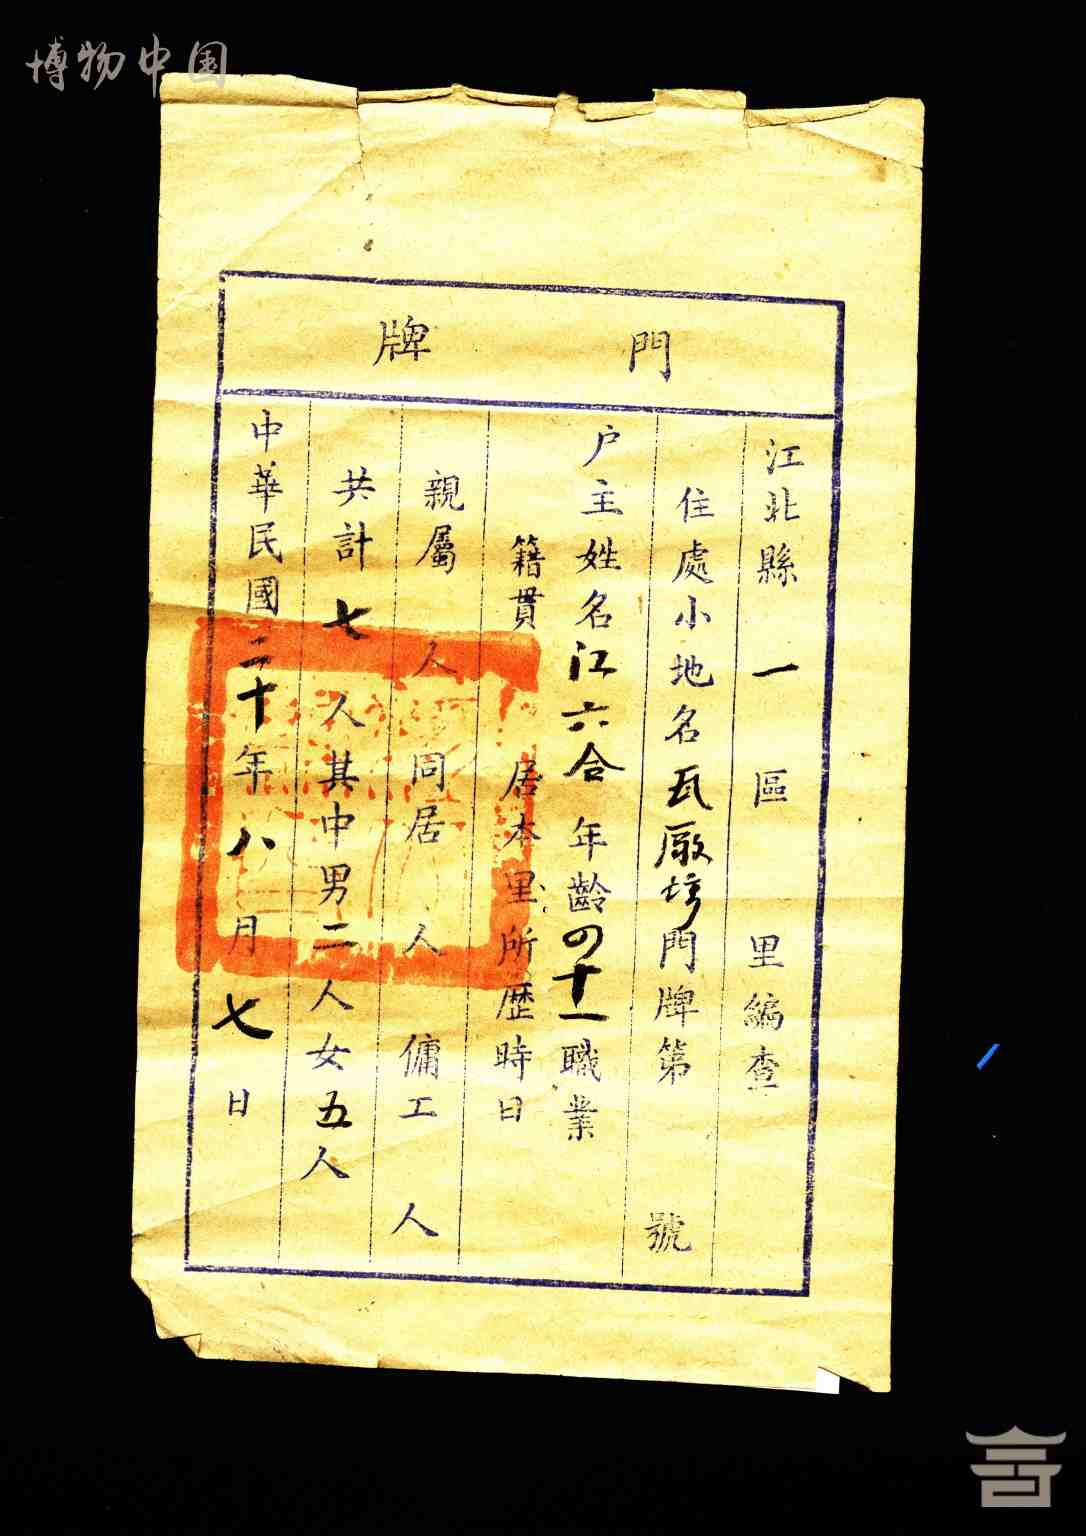 博物中国
門牌
江北縣一區里編查
住處小地名瓦厰塆門牌第號
户主姓名江六合年齡四十一職業
籍貫居本里所歷時日
親屬人同居人傭工人
共計七人其中男二人女五人
中華民國二十年八月七日